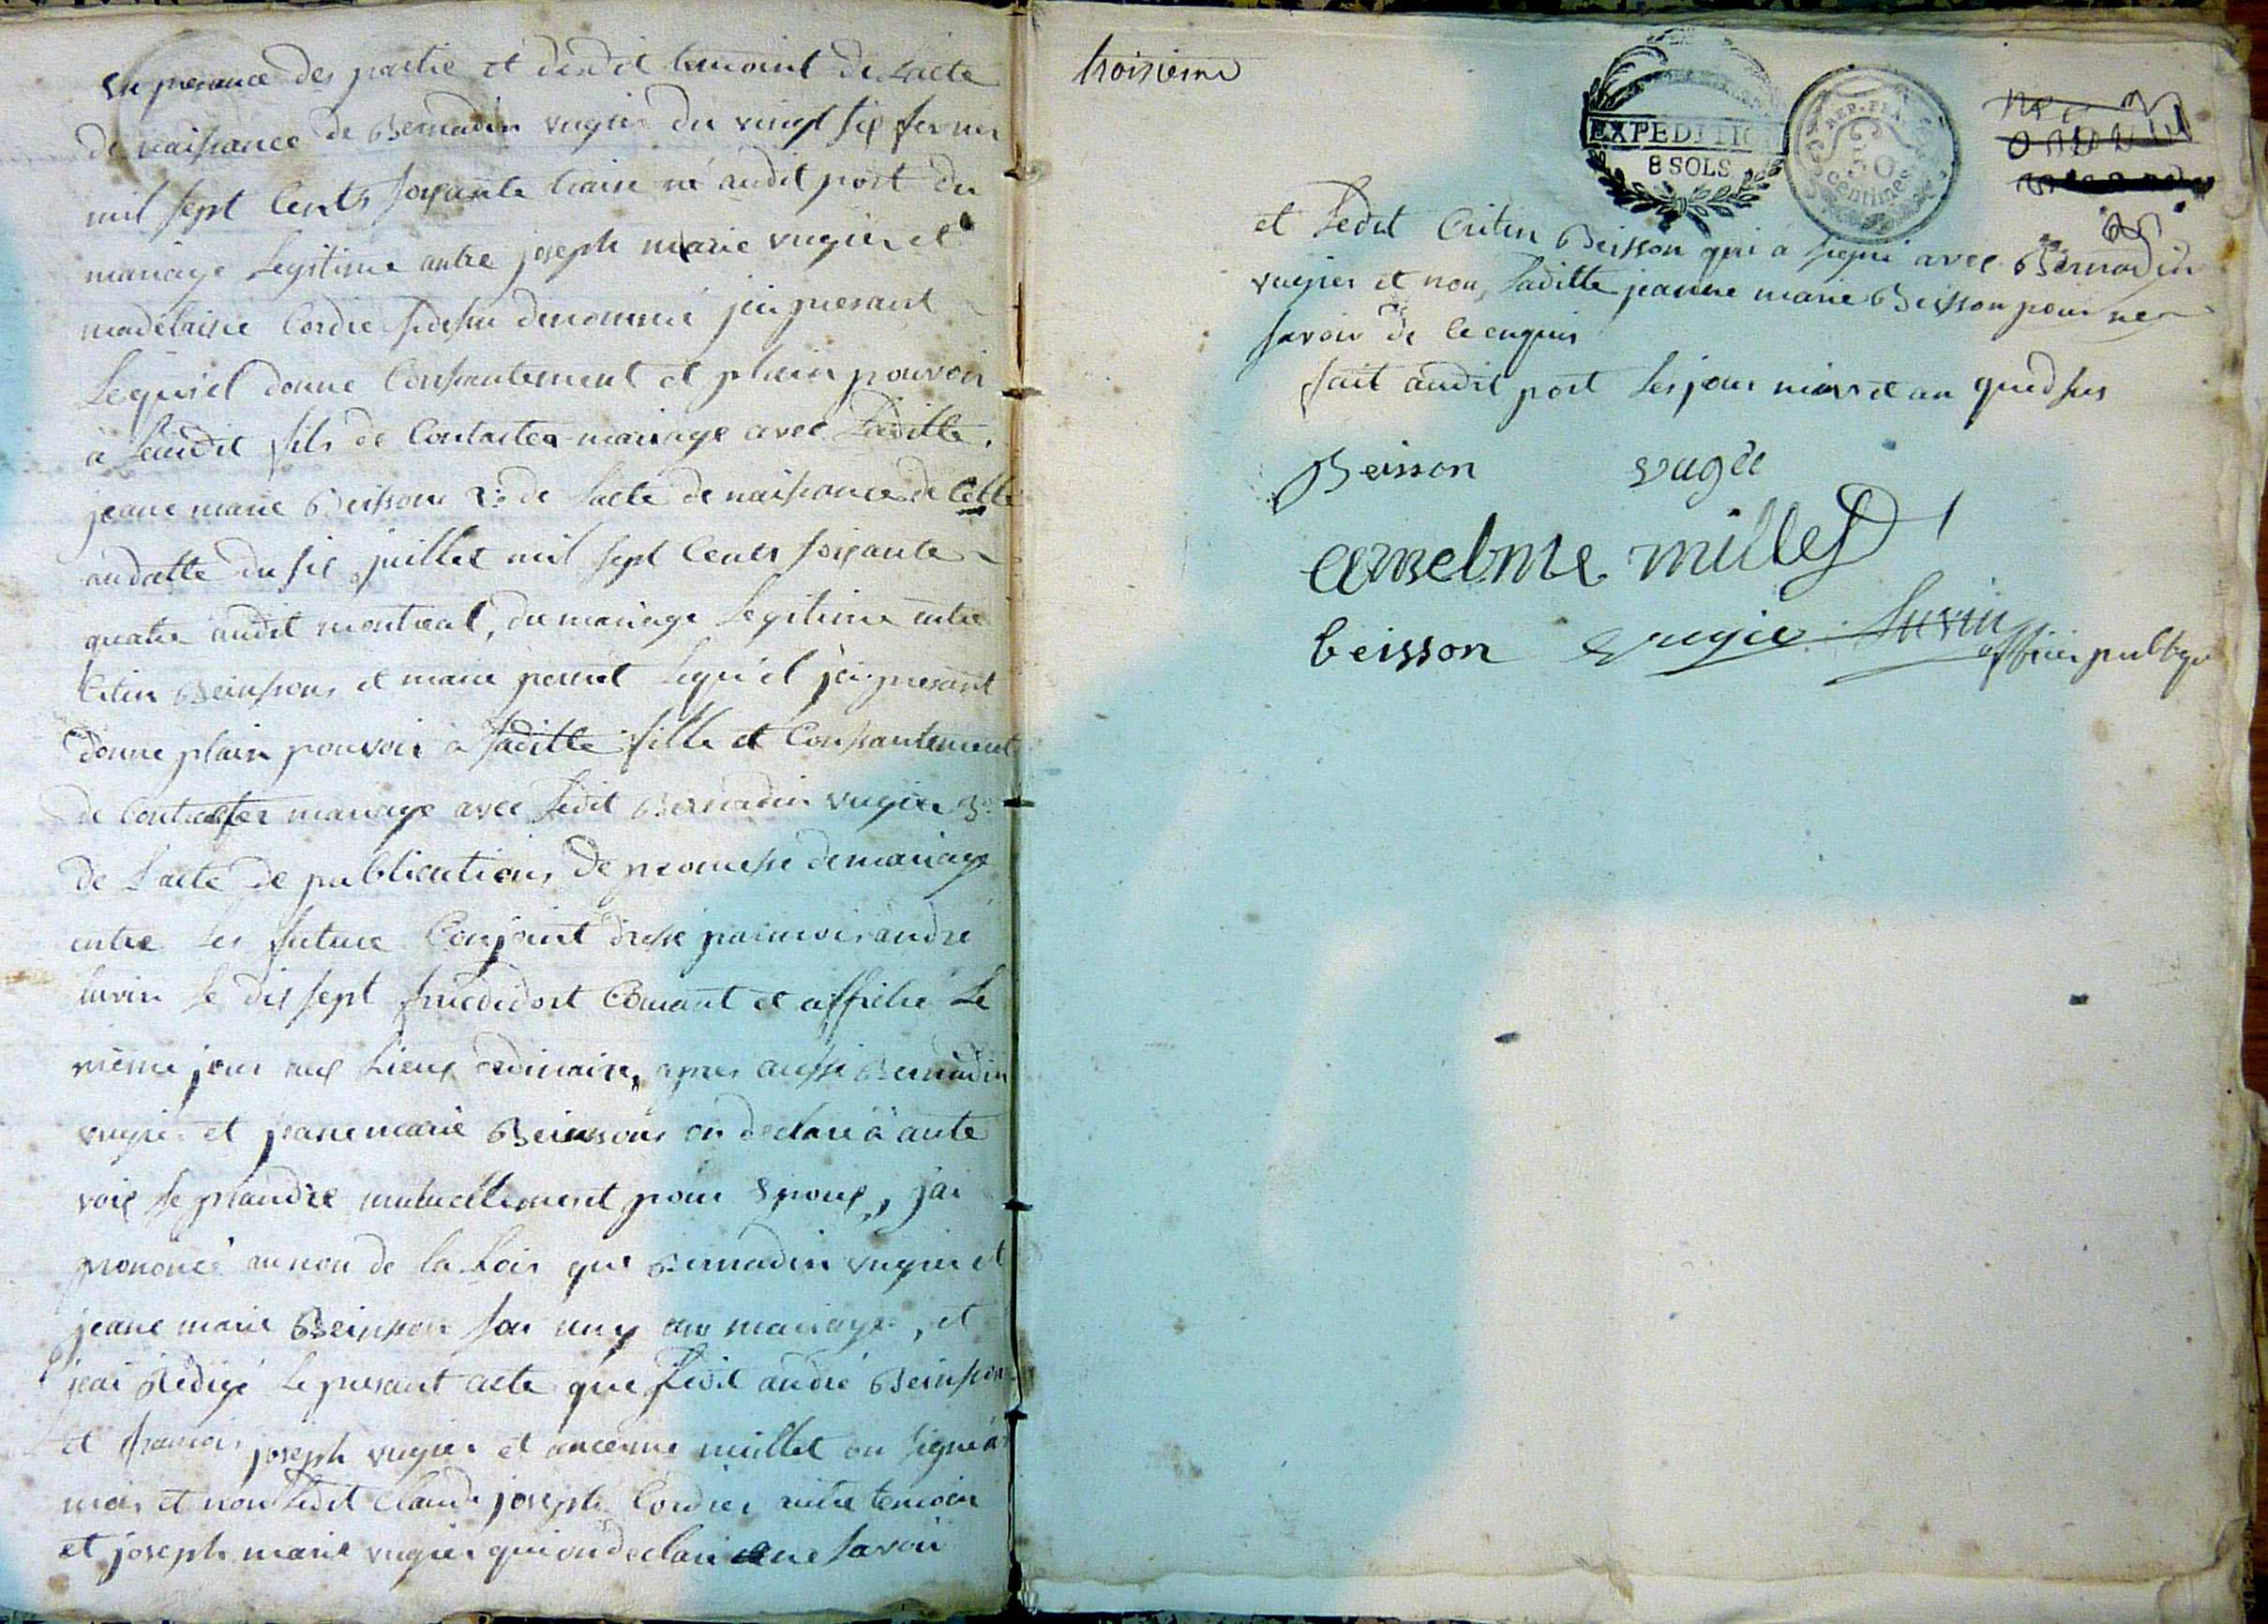 en presance des partie et desdit temoint de Lacte
de naissance de Bernadin vugier du vingt six fevrier
mil sept Cents soixante traise né audit port du
mariage Legitime entre joseph marie vugier et
madelaine Cordier sidesu denommé jci presant
Lequ'el donne Consantement et plain pouvoir
a Seudit fils de Contacter mariage avec Laditte
jeane marie Beisson 2o de Lacte de naissance de Cette
andatte du six juillet mil sept Cents soixante
quatre audit montreal, du mariage Legitime entre
Critin Beinsson et marie perret Lequ'el jci presant
donne plain pouvoir a saditte fille et Consantement
de Contracter mariage avec Ledit Bernadin vugier 3o
de Lacte de publications de promesse de mariage
entre Les future Conjoint dressé par moi andré
Savin Le dis sept fructidort Courant et affiché Le
même jour aux Lieux ordinaire, apres aussi Bernadin
vugier et jeane marie Beinsson on declaré à aute
voix se prandre mutuellement pour Epoux, j'ai
prononcé au nom de la Lois que Bernadin vugier et
jeane marie Beinsson son uny au mariage, et
j'eai rédigé Le presant acte que Ledit andré Beinsson
et francois joseph vugier et ancerme millet on signé av
moi et non Ledit Claude joseph Cordier autre temoin
et joseph marie vugier qui on declaré ne savoir
troisieme
EXPEDITIO
8 SOLS
REP. FRA.
50
centimes
et Ledit Critin Beisson qui a signé avec Bernadin
vugier et non Laditte jeanne marie Beisson pour ne
savoir de ce enquis
fait audit port Les jour mois et an quedsus
Beisson vugée
anselme millet
beisson vugie Savin
officier publique